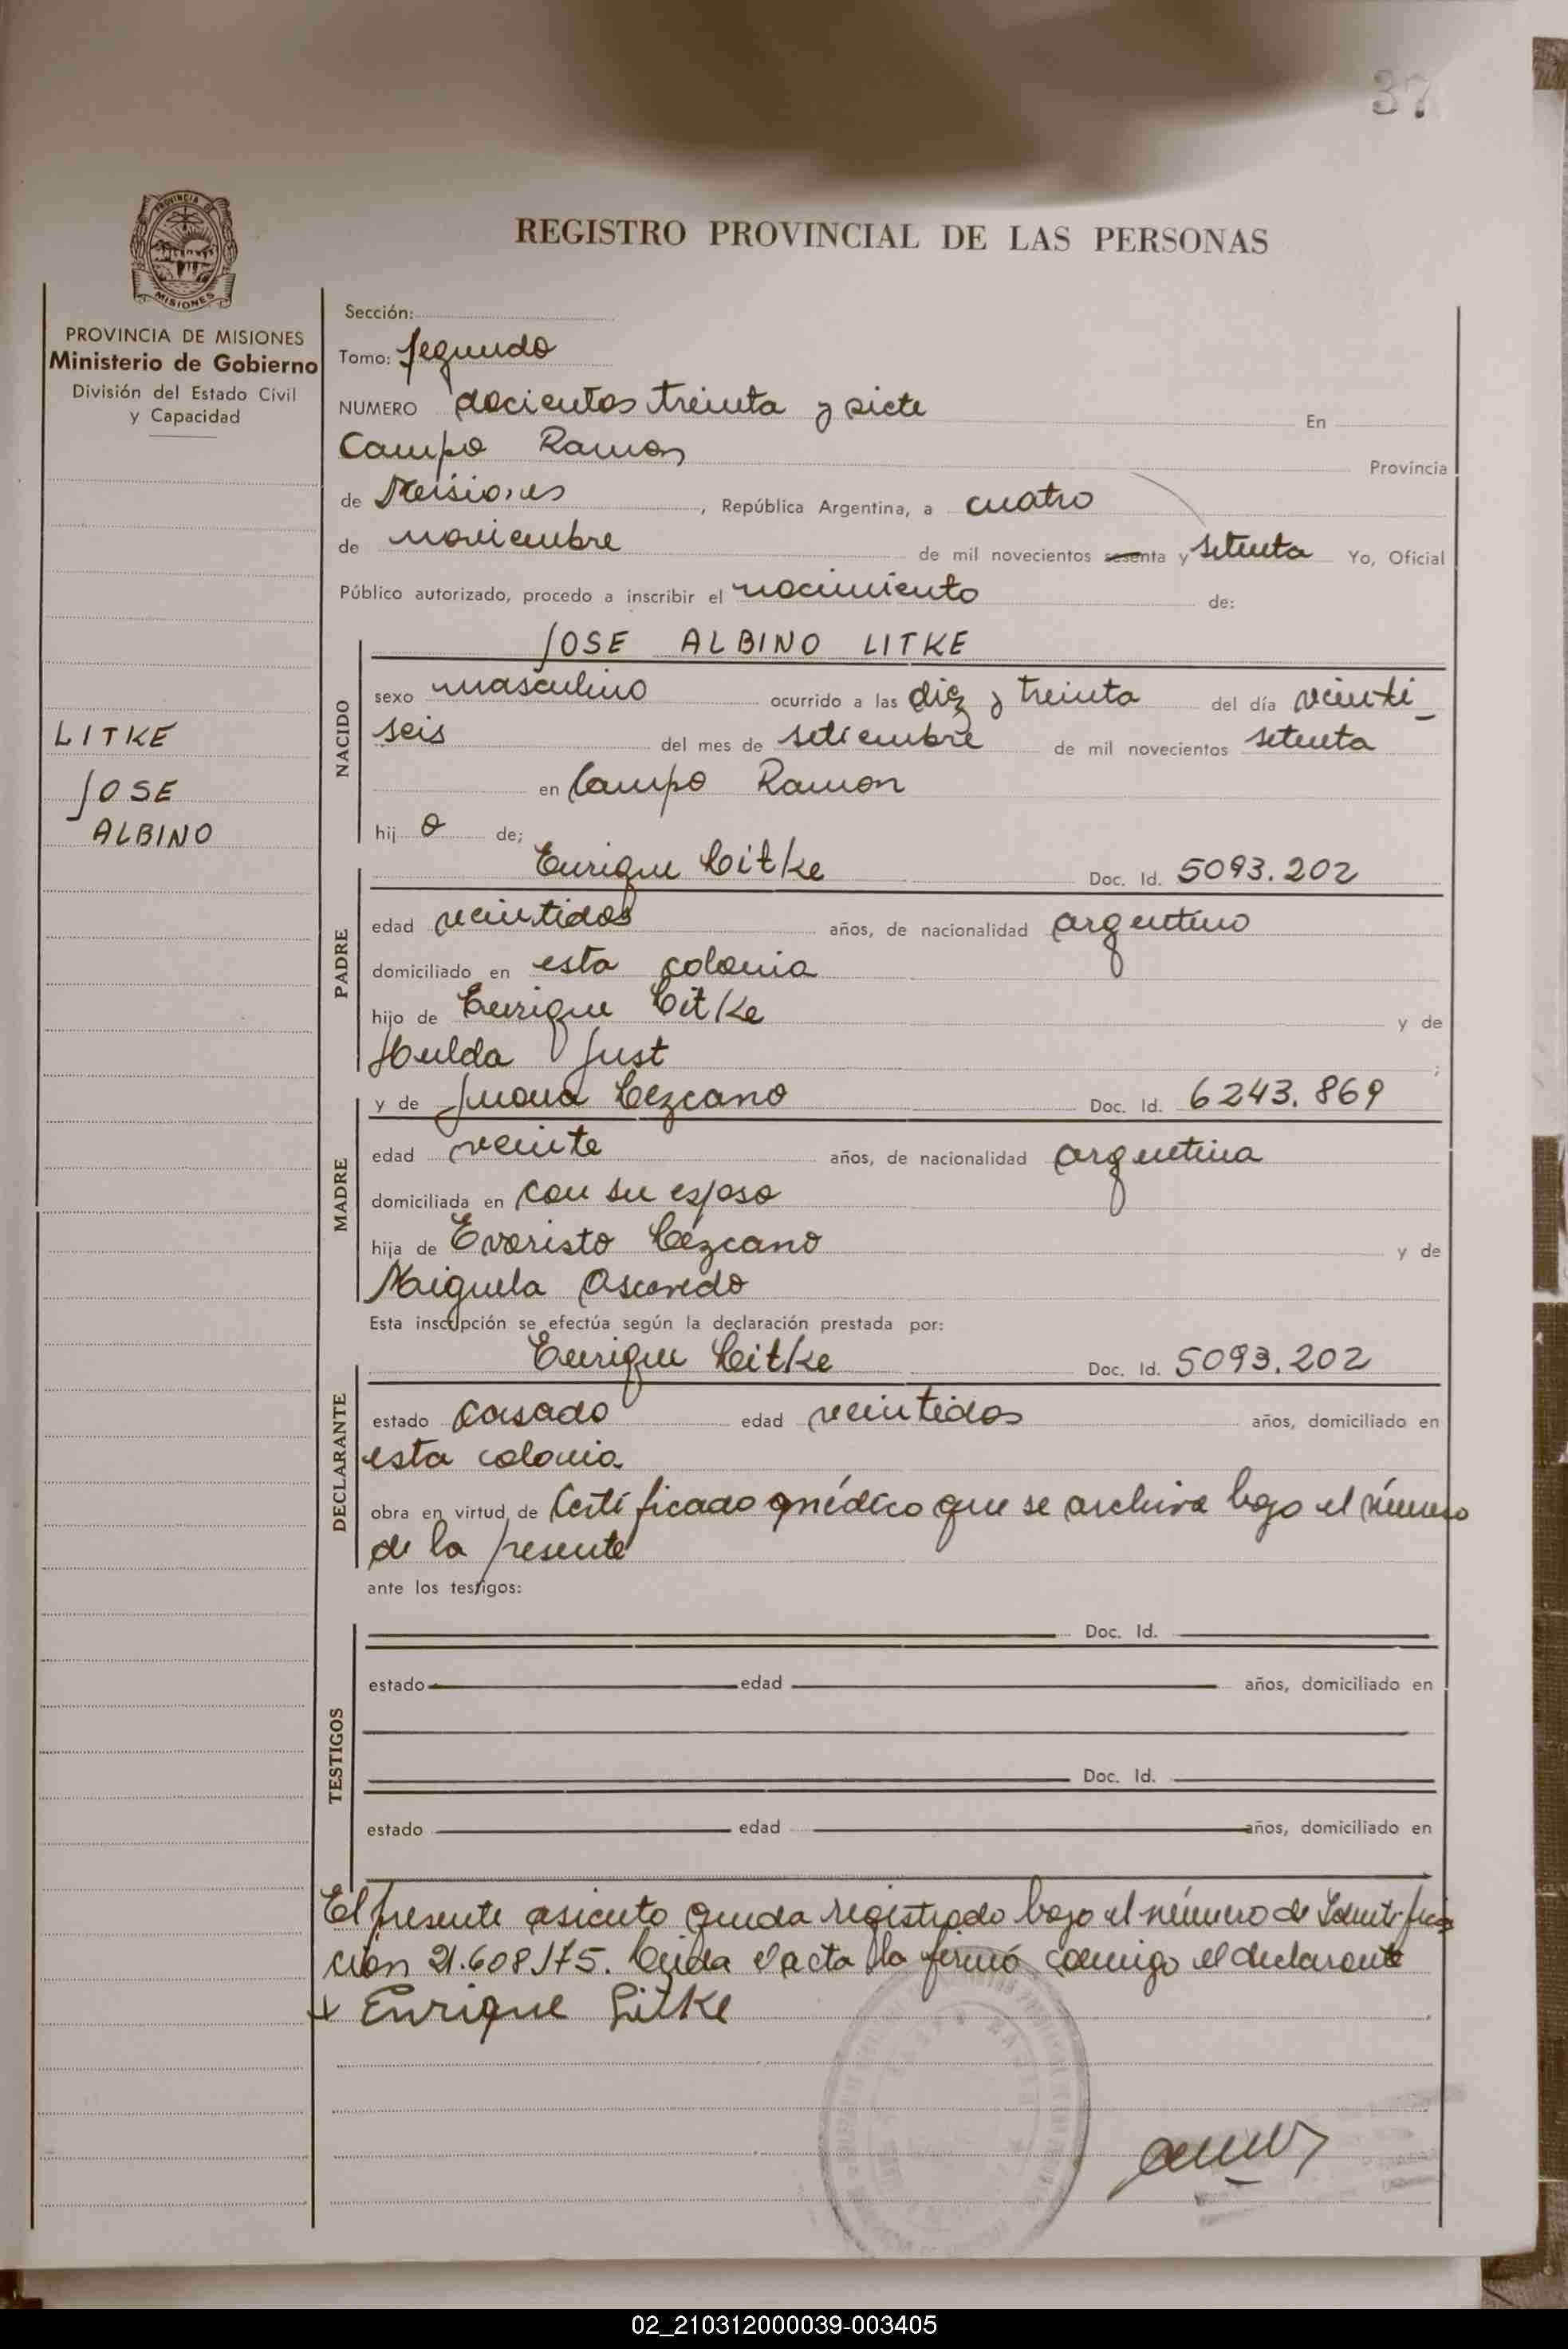 37
REGISTRO PROVINCIAL DE LAS PERSONAS
MISIONES
PROVINCIA DE MISIONES
Ministerio de Gobierno
División del Estado Civil
y Capacidad
LITKE
JOSE
ALBINO
Sección:
Tomo: Segundo
NUMERO docientos treinta y siete En
Campo Ramon Provincia
de Misiones, República Argentina, a cuatro
de noviembre de mil novecientos sesenta y setenta Yo, Oficial
Público autorizado, procedo a inscribir el nacimiento de:
JOSE ALBINO LITKE
NACIDO
sexo masculino ocurrido a las diez y treinta del día veinti_
seis del mes de setiembre de mil novecientos setenta
en Campo Ramon
hij o de;
Enrique Litke Doc. Id. 5093.202
PADRE
edad veintidos años, de nacionalidad argentino
domiciliado en esta colonia
hijo de Enrique Litke y de
Hulda Just ;
y de Juana Lezcano Doc. Id. 6243.869
MADRE
edad veinte años, de nacionalidad argentina
domiciliada en con su esposo
hija de Evaristo Lézcano y de
Miguela
Esta inscripción se efectúa según la declaración prestada por:
Enrique Litke Doc. Id. 5093.202
DECLARANTE
estado casado edad veintidos años, domiciliado en
esta colonia
obra en virtud de Certificado médico que se archiva bajo el número
de la presente
ante los testigos:
TESTIGOS
Doc. Id.
estado edad años, domiciliado en
Doc. Id.
estado edad años, domiciliado en
El presente asiento queda registrado bajo el número de Identifica
ción 21.608.175. Leida el acta la firmó conmigo el declarante
Enrique Litke
02_210312000039-003405